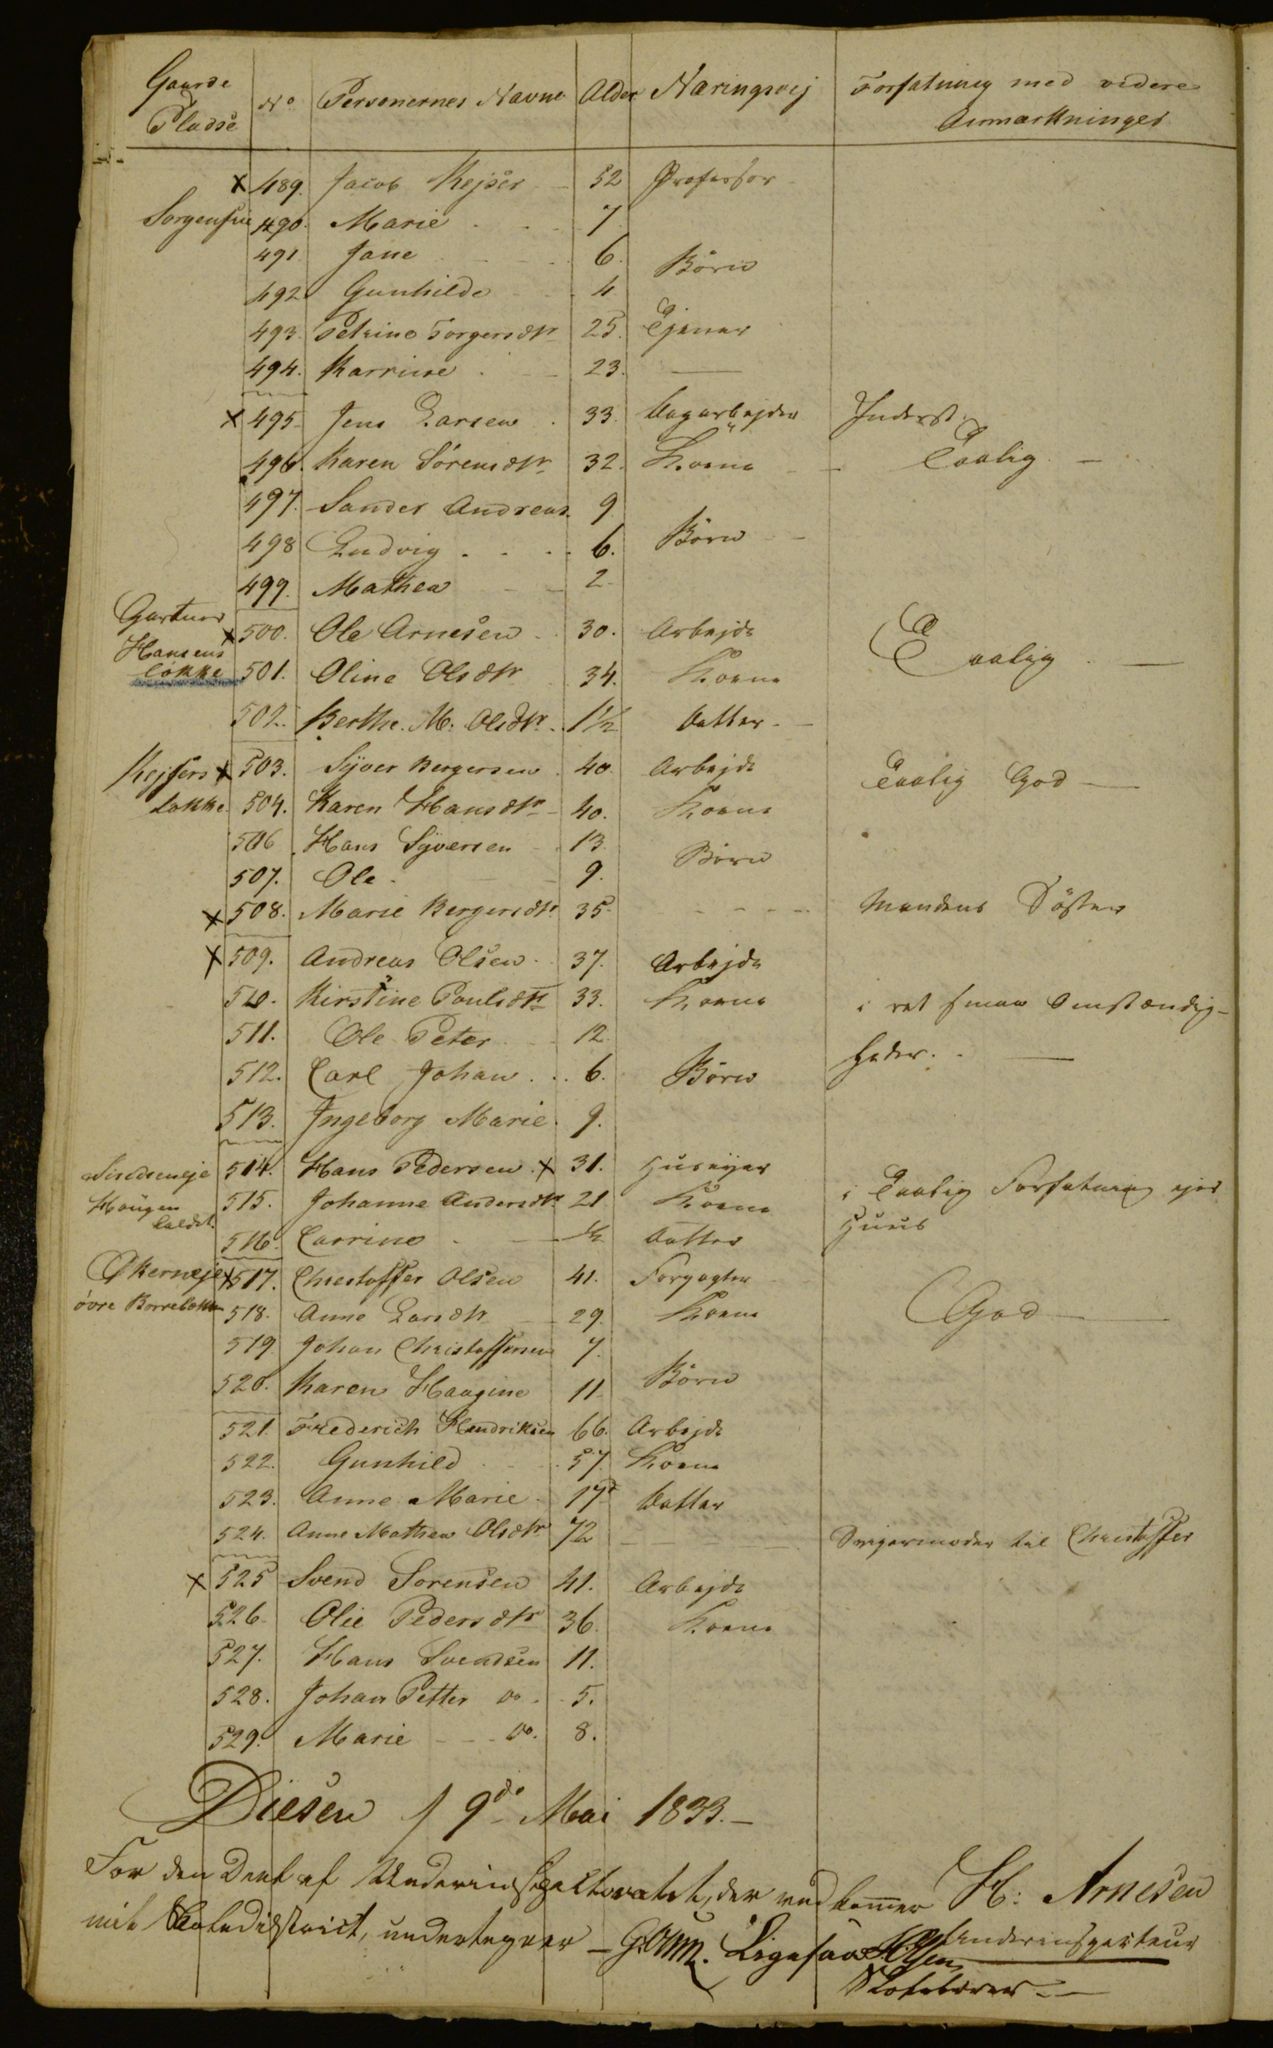 Gaarde & Pladse No Personernes Navne Alder Næringsvej Forfatning med videre Anmærkninger
x 489. Jacob Kejser 52 Professor
Sorgenfrie 490. Marie 7
491. Jane 6. Børn
492 Gunhilde 4
493. Petrine Torgersdtr 25. Tjener
494. Karrine 23. —
x 495 Jens Larsen 33. Dagarbejder Inderst
496. Karen Sørensdtr 32. Kone Taalig
497. Sander Andreas 9
498 Ludvig 6. Børn
499. Mathea 2
Gartner Hansens Løkke x 500. Ole Arnesen 30. Arbejde Taalig
501. Oline Olsdtr 34. Kone
502. Berthe M: Olsdtr 1½ Datter
Kejsers Løkke x 503. Syver Bergersen 40 Arbejde Taalig God
504. Karen Hansdtr 40. Kone
506 Hans Syversen 13. Børn
507. Ole 9.
x 508. Marie Bergersdtr 35 Mandens Søster
x 509. Andreas Olsen 37. Arbejde
510. Kirstine Poulsdtr 33. Kone i ret smaa Omstændig-
511. Ole Peter 12 heder.
512. Carl Johan 6. Børn
513. Ingeborg Marie 9.
514. Hans Pedersen x 31. Huseijer
Hougen kaldt 515. Johanne Andersdtr 21 Kone i Taalig Forfatning ejer
516. Carrine ½ Datter Huus
øvre x 517. Christoffer Olsen 41. Forpagter God
518. Anne Larsdtr 29. Kone
519 Johan Christoffersen 7.
520. Karen Haagine 11 Børn
521. Frederich Hendriksen 66. Arbejde
522. Gunhild 57 Kone
523. Anne Marie 17 Datter
524. Anne Mathea Olsdtr 72 Svigermoder til Christoffer
x 525 Svend Sorensen 41. Arbejde
526. Olie Pedersdtr 36. Kone
527. Hans Svendsen 11.
528. Johan Petter do 5.
529. Marie do. 8.
Diesen 19de Mai 1833.
For den Deel af Underinspectoratet, der vedkommer H: Arnesen
mit Rodedistrict, undertegner Ligesaa Underinspecteur